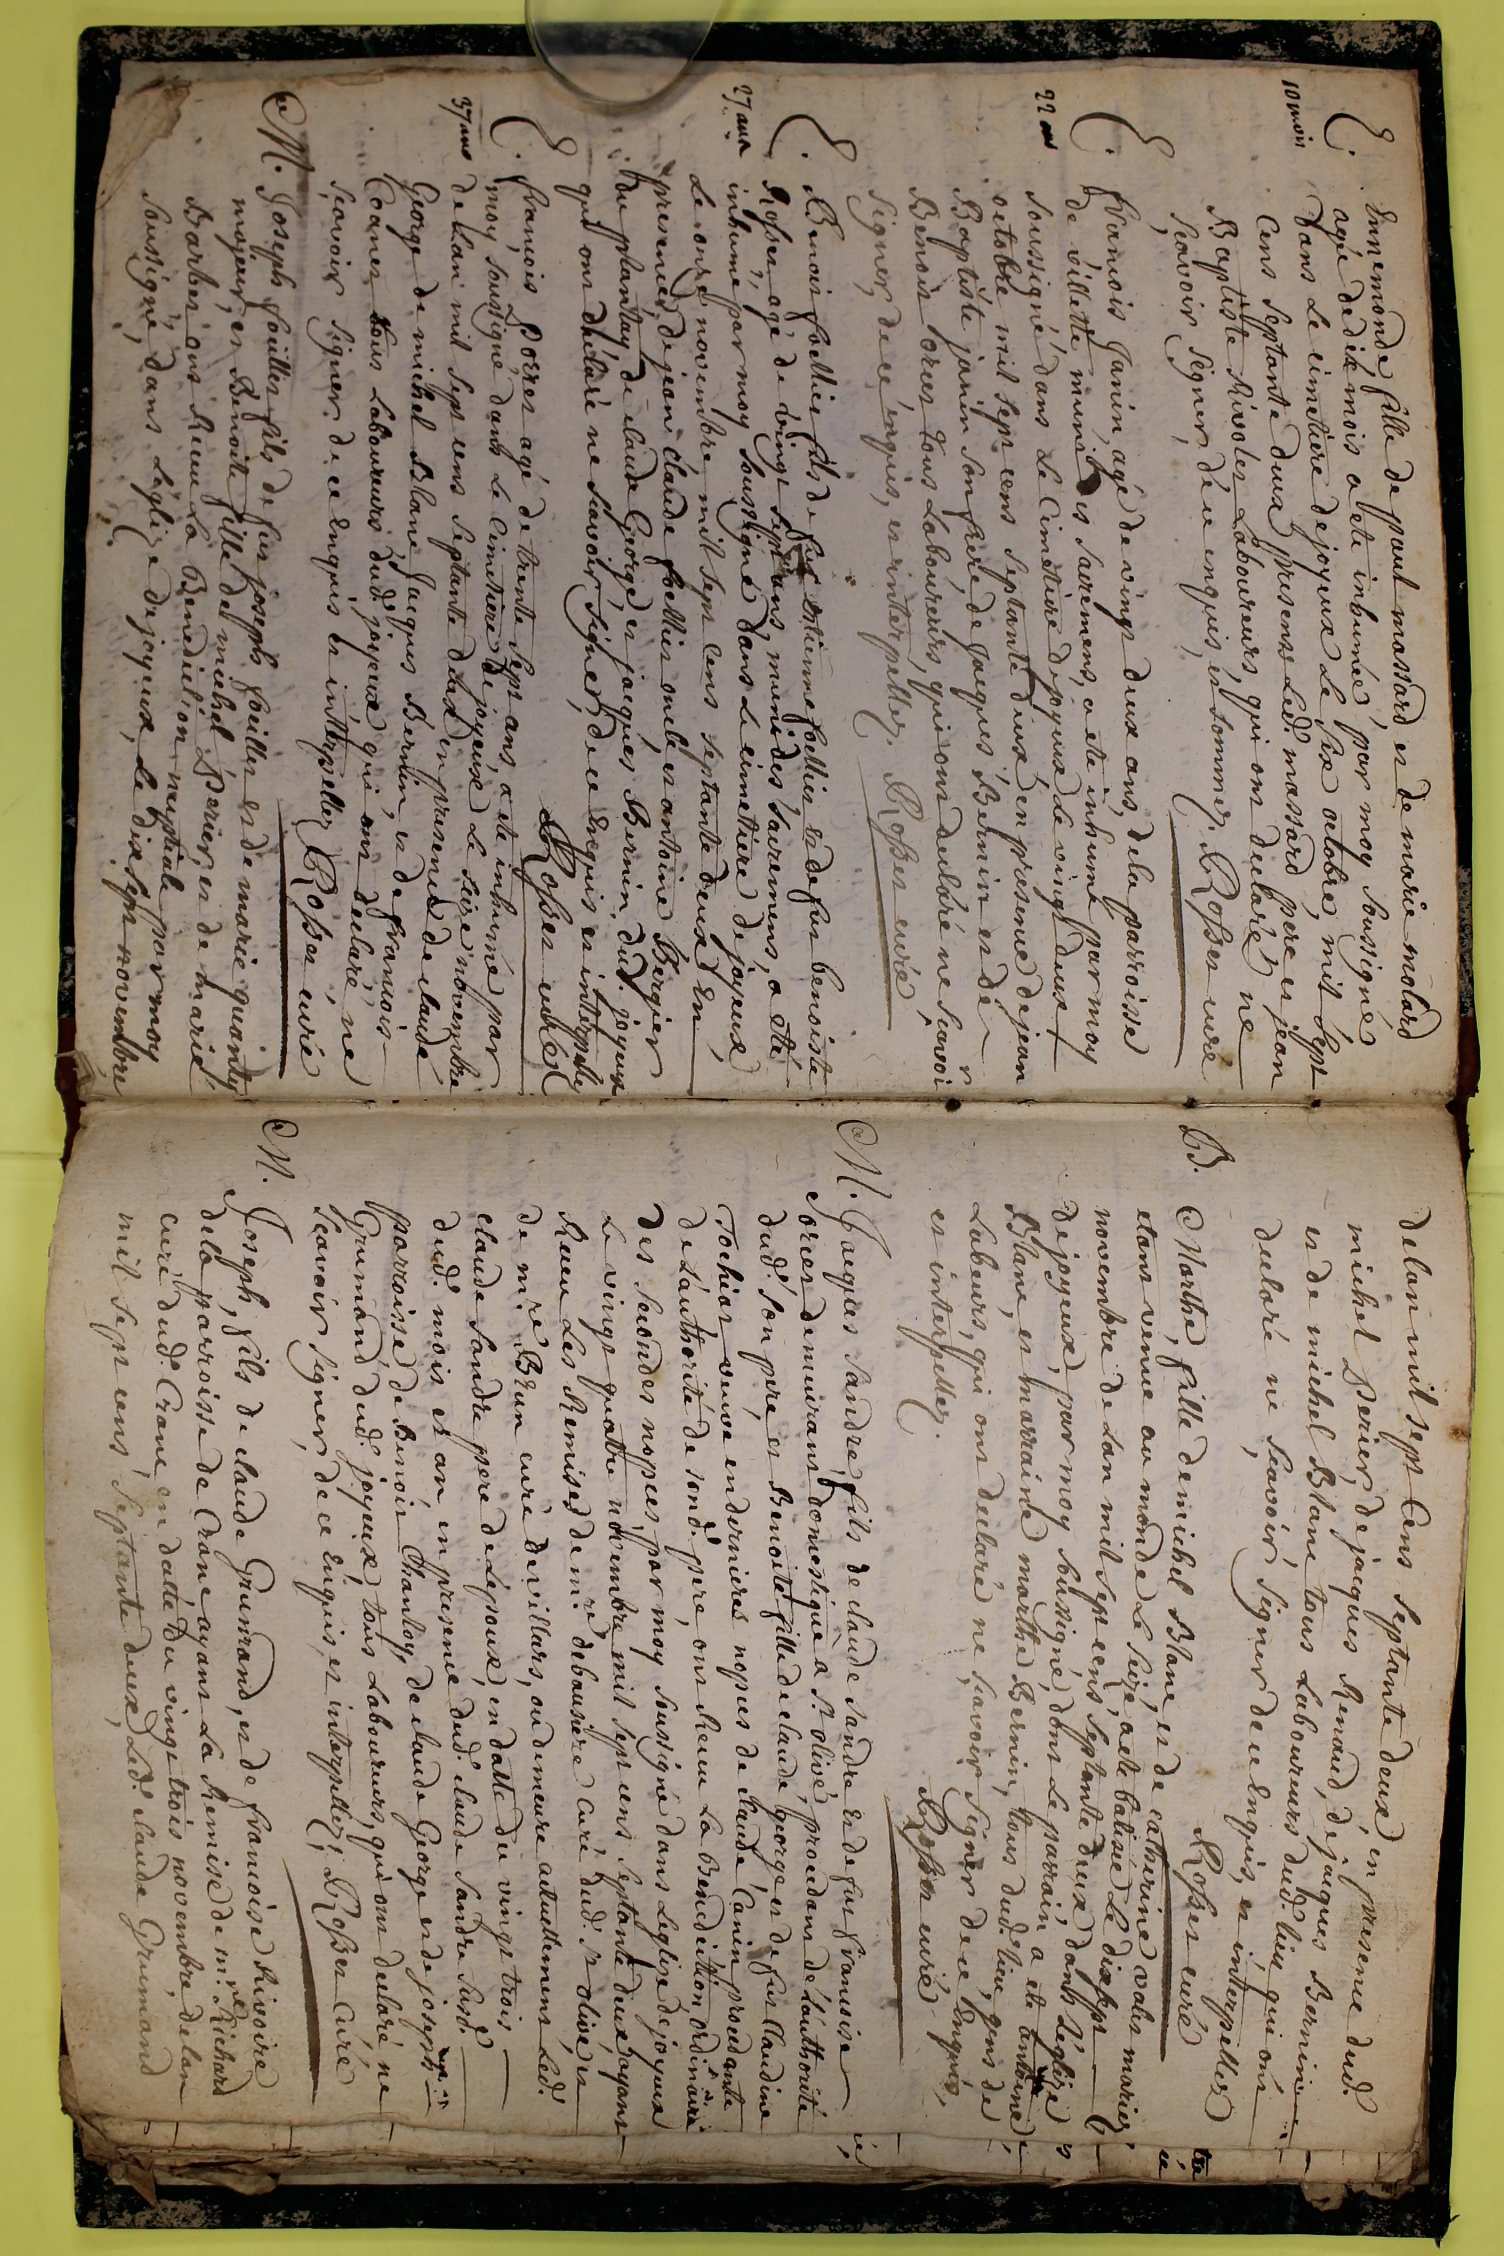 E.
10 mois
Ennemonde fille de paul massard et de marie molard
agée de dix mois a eté inhumée par moy soussigné
dans le cimetiere de joyeux le six octobre mil sept
cens septante deux presens led. massard pere et jean
Baptiste Rivolet Laboureurs, qui ont declaré ne
scavoir signer de ce enquis, et sommez. Rosset curé
E.
22 ans
francois Janin agé de vingt deux ans, de la parroisse
de villette muni des sacremens, a eté inhumé par moy
soussigné dans le cimetiere de joyeux le vingt deux
octobre mil sept cens septante deux, en presence de jean
Baptiste janin son frere, de jacques Bernin et de
Benoit Torret tous Laboureurs, qui ont declaré ne scavoir
signer, de ce enquis, et interpellez. Rosset curé
E.
27 ans
Benoit follier fils de fut estienne follier et de fut benoiste
Rosset, agé de vingt sept ans, muni des sacremens, a eté
inhumé par moy soussigné dans le cimettiere de joyeux
le onze novembre mil sept cens septante deux en
presence de jean claude follier oncle et antoine Bergier
du plantay, de claude George, et jacques Bernin dud. joyeux
qui ont déclaré ne scavoir signer, de ce enquis et interpellez
Rosset curé
E.
37 ans
francois Porret agé de trente sept ans, a eté inhumé par
moy soussigné dans le cimetiere de joyeux le seize novembre
de l'an mil sept cens septante deux en presence de claude
George de michel Blanc Jacques Bernin, et de francois
Coanet tous Laboureurs dud. joyeux qui ont declaré ne
scavoir signer de ce enquis et interpellez Rosset curé
M.
Joseph foillier fils de fut joseph foillier et de marie quandy
majeur, et Benoite fille de michel Perier, et de marie
Barbet ont Receu la Benediction nuptiale par moy
soussigné dans L'eglize de joyeux, le dix sept novembre
de l'an mil sept cens septante deux, en presence dud.
michel Perier, de jacques Renaud, de jaques Bernin
et de michel Blanc tous Laboureurs dud. lieu qui ont
declaré ne scavoir signer de ce enquis, et interpellez
Rosset curé
B.
Marthe, fille de michel Blanc et de catherine valet mariez,
etant venue au monde le seize, a eté batisée le dix sept
novembre de l'an mil sept cens septante deux dans L'eglize
de joyeux, par moy soussigné, dont le parrain a eté antoine
Blanc, et marraine marthe Bernin, tous dud. lieu, gens de
Labeurs, qui ont declaré ne scavoir signer de ce enquis,
et interpellez. Rosset curé
M.
Jacques Sandre, fils de claude Sandre et de fut francoise
Torret demeurant domestique a St olive, procedant de L'authorité
dud. son pere et Benoite fille de claude george et de fut claudine
Tochier veuve en dernieres nopces de claude Canin procedante
de L'authorité de sond. pere, ont Receu la Benediction ordinaire
des secondes nopces, par moy soussigné dans L'eglize de joyeux
le vingt quatre novembre mil sept cens septante deux ayant
Receu les Remises de m.re debaussere curé dud. St olive et
de m.re Brun curé de villars, ou demeure actuellement led.
claude Sandre pere de L'epoux, en datte du vingt trois
dud. mois et an, en presence dud. claude Sandre susd.
parroisse de Benoit Chanloy, de claude George et de joseph
Grumand dud. joyeux, tous Laboureurs, qui ont declaré ne
scavoir signer, de ce enquis, et interpellez, Rosset Curé
M.
Joseph, fils de claude Grumand, et de francoise Rivoire
de la parroisse de Crane ayant la Remise de m.re Richard
curé dud. Crane en datte du vingt trois novembre de l'an
mil sept cens septante deux, led. claude Grumand